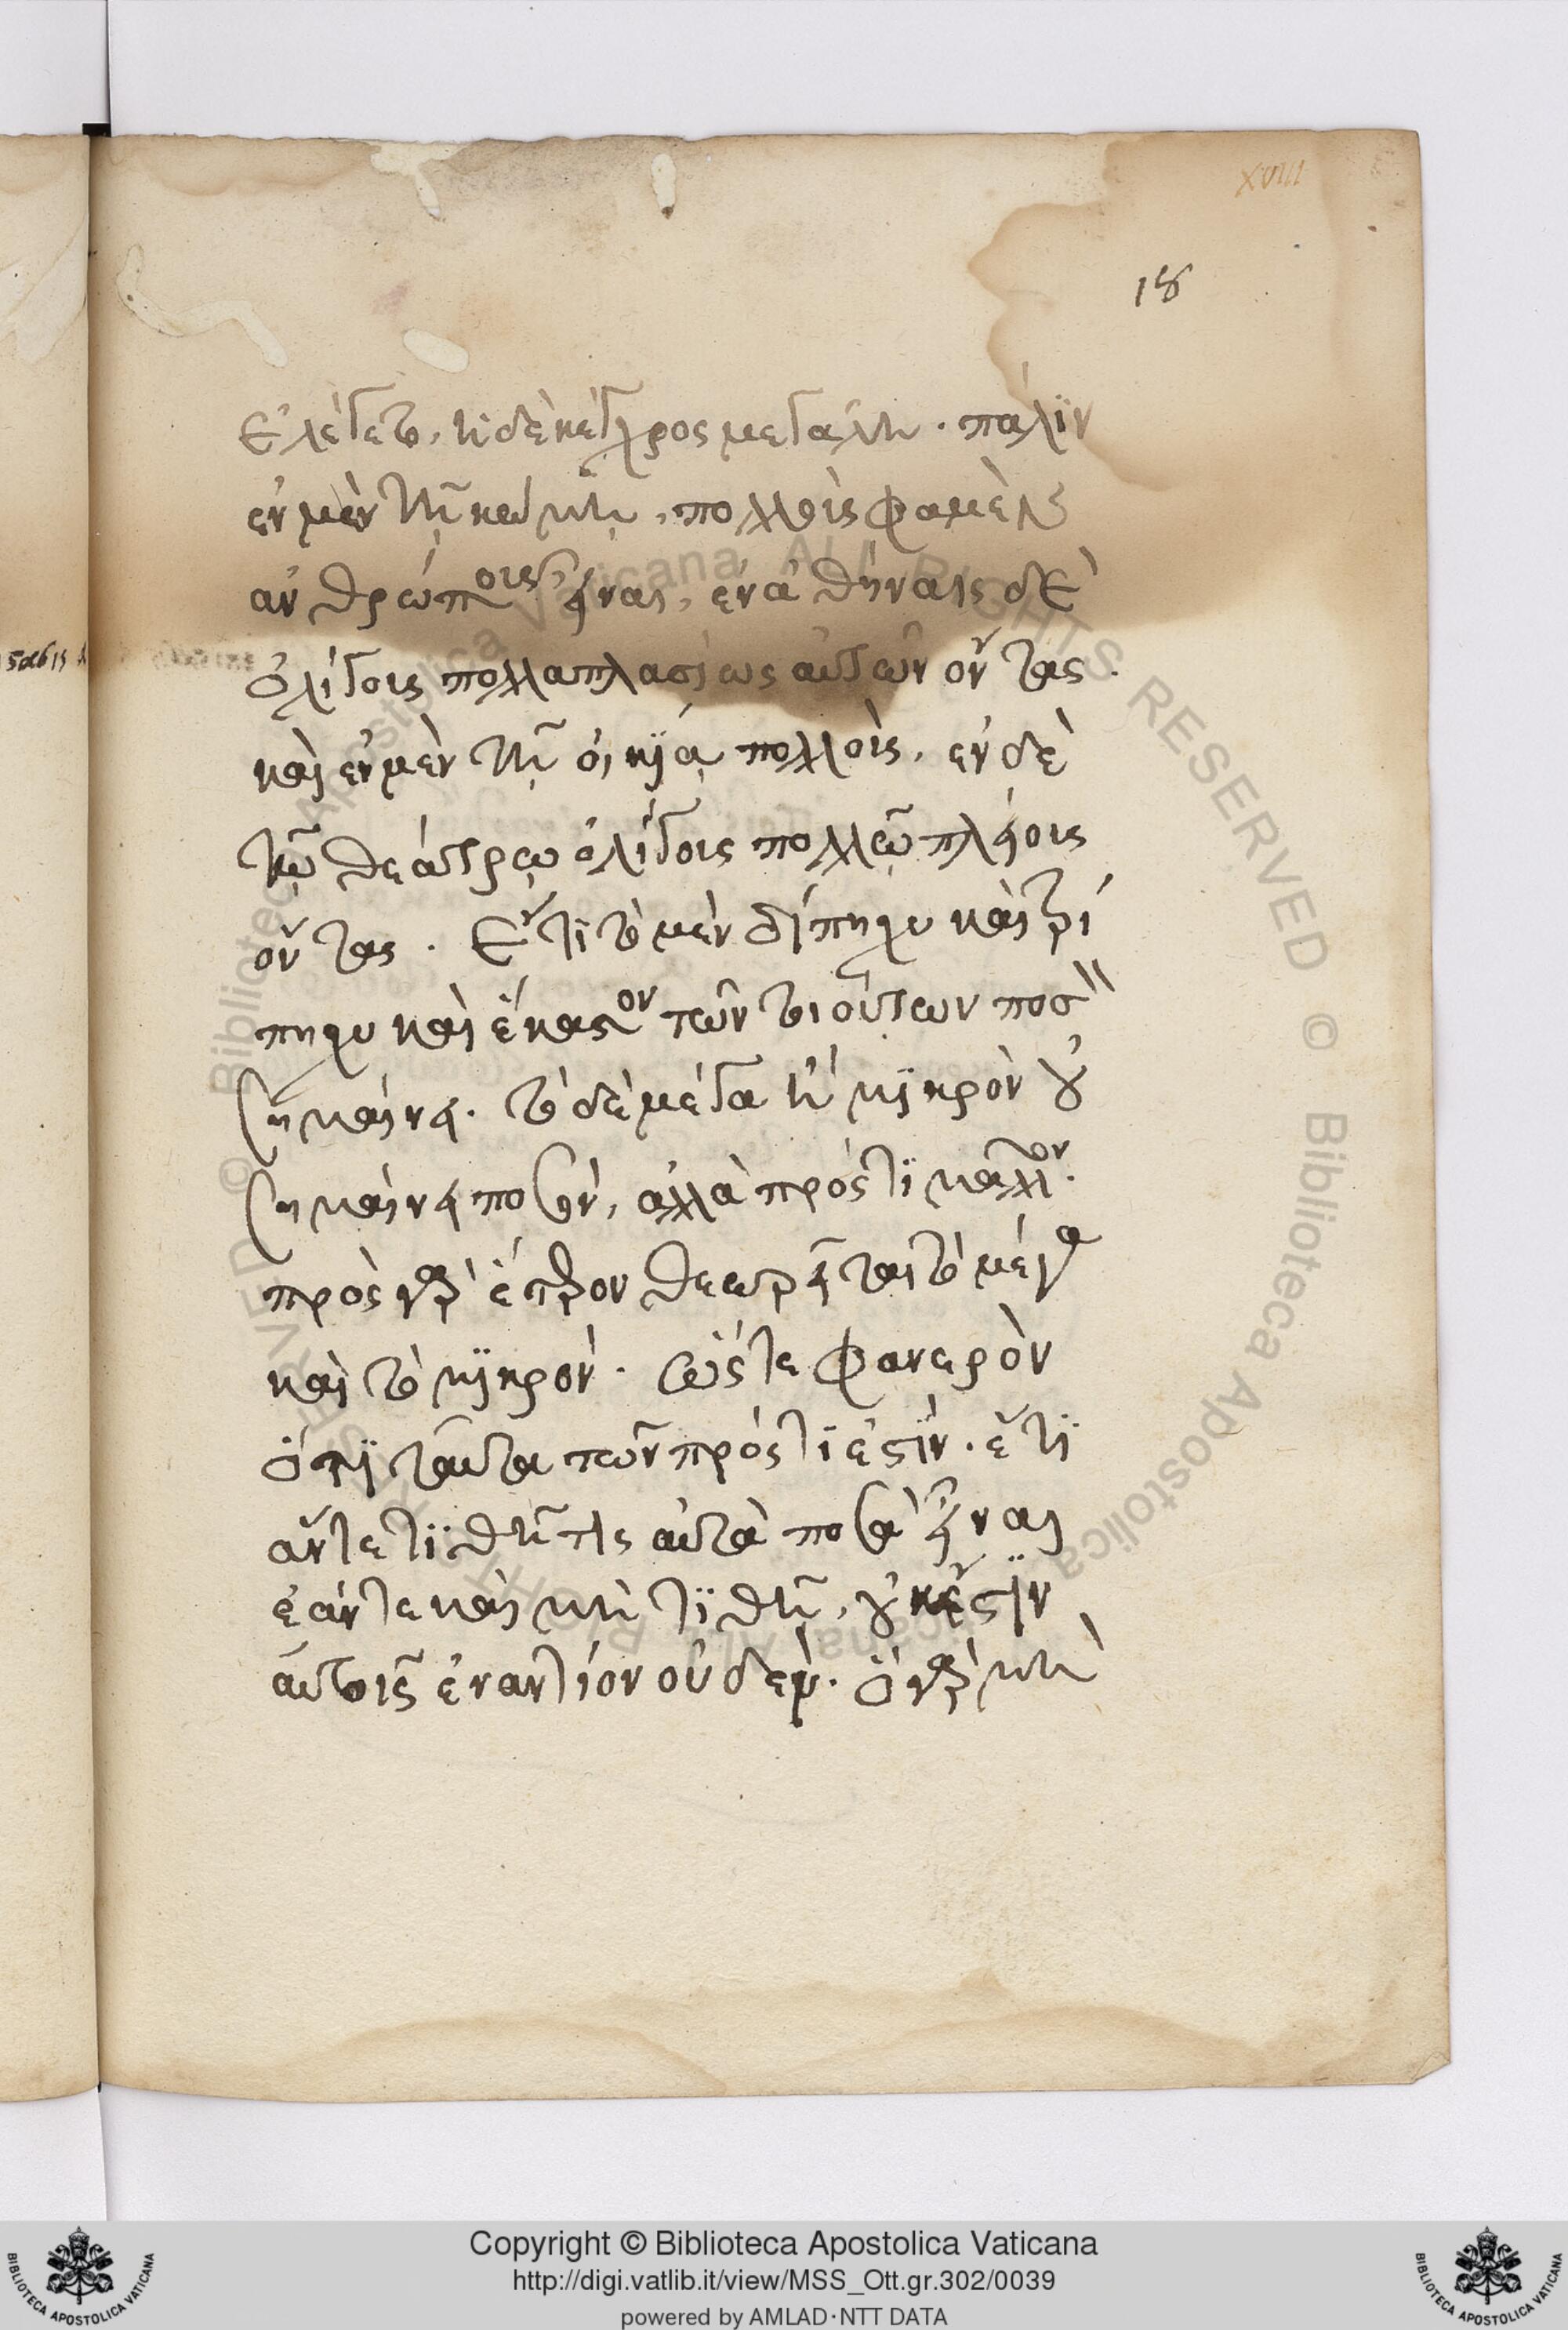 XVIII
18
ἐλέγετο, ἡ δὲ κέγχρος μεγάλη. πάλϊν
ἐν μὲν τῆ κώμη, πολλοὺς φαμὲν
ἀνθρώπους εἶναι, ἐν ἀθήναις δὲ
ὀλίγους πολλαπλασίως αὐτῶν ὄντας.
καὶ ἐν μὲν τῆ οἰκΐα πολλοὺς, ἐν δὲ
τῶ θεάτρω ὀλίγους πολλῶ πλείους
ὄντας. ἔτϊ τὸ μὲν δίπηχυ καὶ τρί
πηχυ καὶ ἕκαστον τῶν τοιούτων ποσὸν
σημαίνει. τὸ δὲ μέγα ἢ μϊκρὸν οὐ
σημαίνει ποσὸν, ἀλλὰ πρός τϊ μᾶλλον.
πρὸς γὰρ ἕτερον θεωρεῖται τὸ μέγα
καὶ τὸ μϊκρόν. ὥστε φανερὸν
ὅτϊ ταῦτα τῶν πρός τϊ ἐστϊν. ἔτϊ
ἄν τε τϊθῆ τις αὐτὰ ποσὰ εἶναι
ἐάν τε καὶ μὴ τϊθῆ, οὐκ ἔστϊν
αὐτοῖς ἐναντίον οὐδέν. ὃ γὰρ μὴ
© Biblioteca Apostolica Vaticana ALL RIGHTS RESERVED © Biblioteca Apostolica Vaticana ALL RIGHTS RESERVED
Copyright © Biblioteca Apostolica Vaticana
http://digi.vatlib.it/view/MSS_Ott.gr.302/0039
powered by AMLAD·NTT DATA
BIBLIOTECA APOSTOLICA VATICANA
BIBLIOTECA APOSTOLICA VATICANA